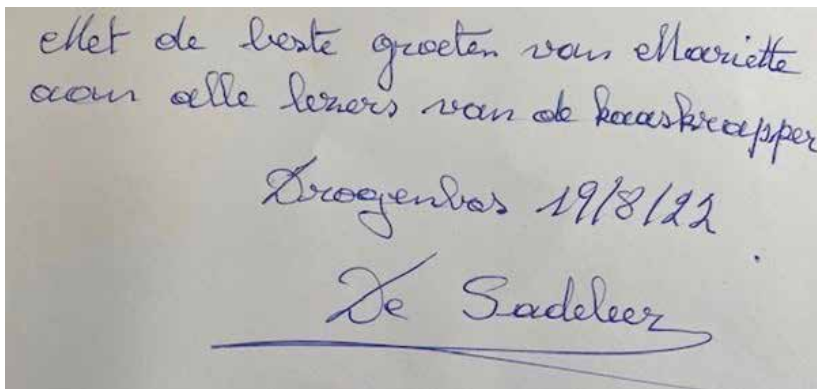 Met de beste groeten van Mariette
aan alle lezers van de kaaskrapper
Drogenbos 19/8/22
De Sadeleer